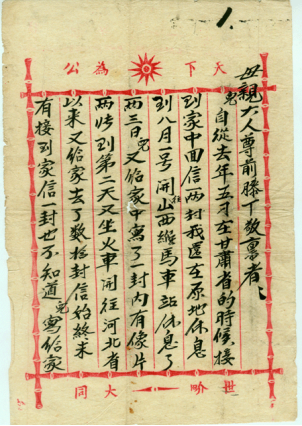 1.
天下為公
母親大人尊前膝下敬稟者
兒自從去年五月在甘肅省的時候接
到家中回信兩封我還在原地休息
到八月一号開往山西縱馬車站休息了
两三日兒又給家中寫了一封内有像片
两張到第二天又坐火車開往河北省
以來又給家去了数拾封信始終未
有接到家信一封也不知道兒寫給家
世界大同